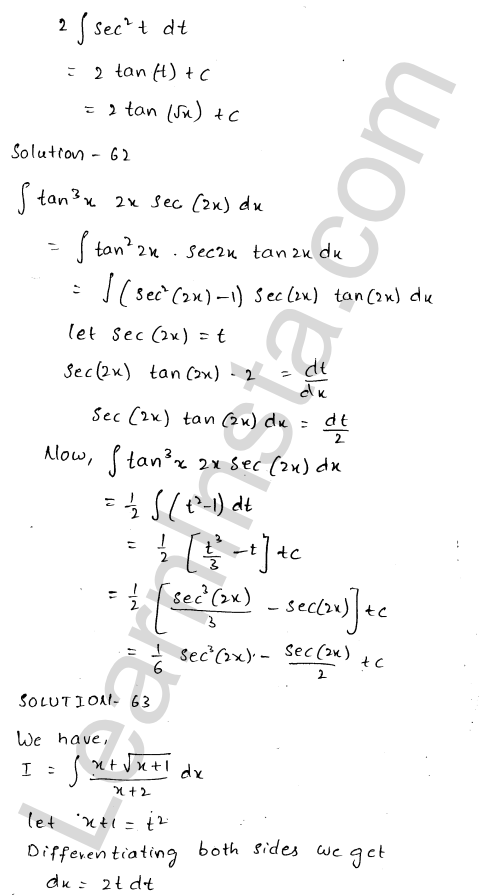 2 ∫ sec² t dt
= 2 tan (t) + c
= 2 tan (√x) + c
Solution - 62
∫ tan³x 2x sec (2x) dx
= ∫ tan² 2x . sec2x tan 2x dx
= ∫ (sec² (2x) -1) sec (2x) tan (2x) dx
let sec (2x) = t
sec(2x) tan (2x) - 2 = dt/dx
sec (2x) tan (2x) dx = dt/2
Now, ∫ tan³x 2x sec (2x) dx
= 1/2 ∫ (t²-1) dt
= 1/2 [t³/3 - t] + c
= 1/2 [sec³(2x)/3 - sec(2x)] + c
= 1/6 sec³(2x) - sec(2x)/2 + c
SOLUTION- 63
We have,
I = ∫ x+√x+1/x+2 dx
let x+1 = t²
Differentiating both sides we get
dx = 2t dt
LearnInsta.com